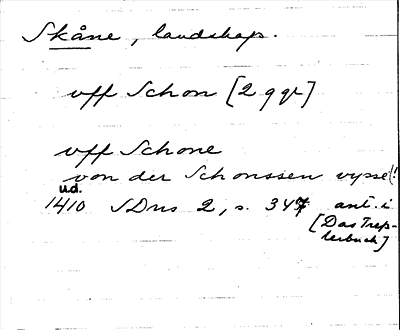 Skåne, landskap.
vff Schon [2 ggr]
vff Schone
von der Schonssen vysse (!
u.d.
1410 SDns 2, s. 347 ant. i
[Das Tress-
lerbuch]